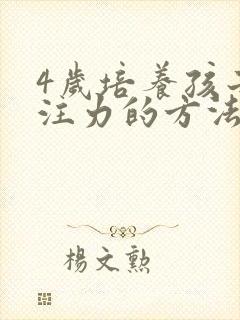 4歲培養孩子
注力的方法
楊文勲